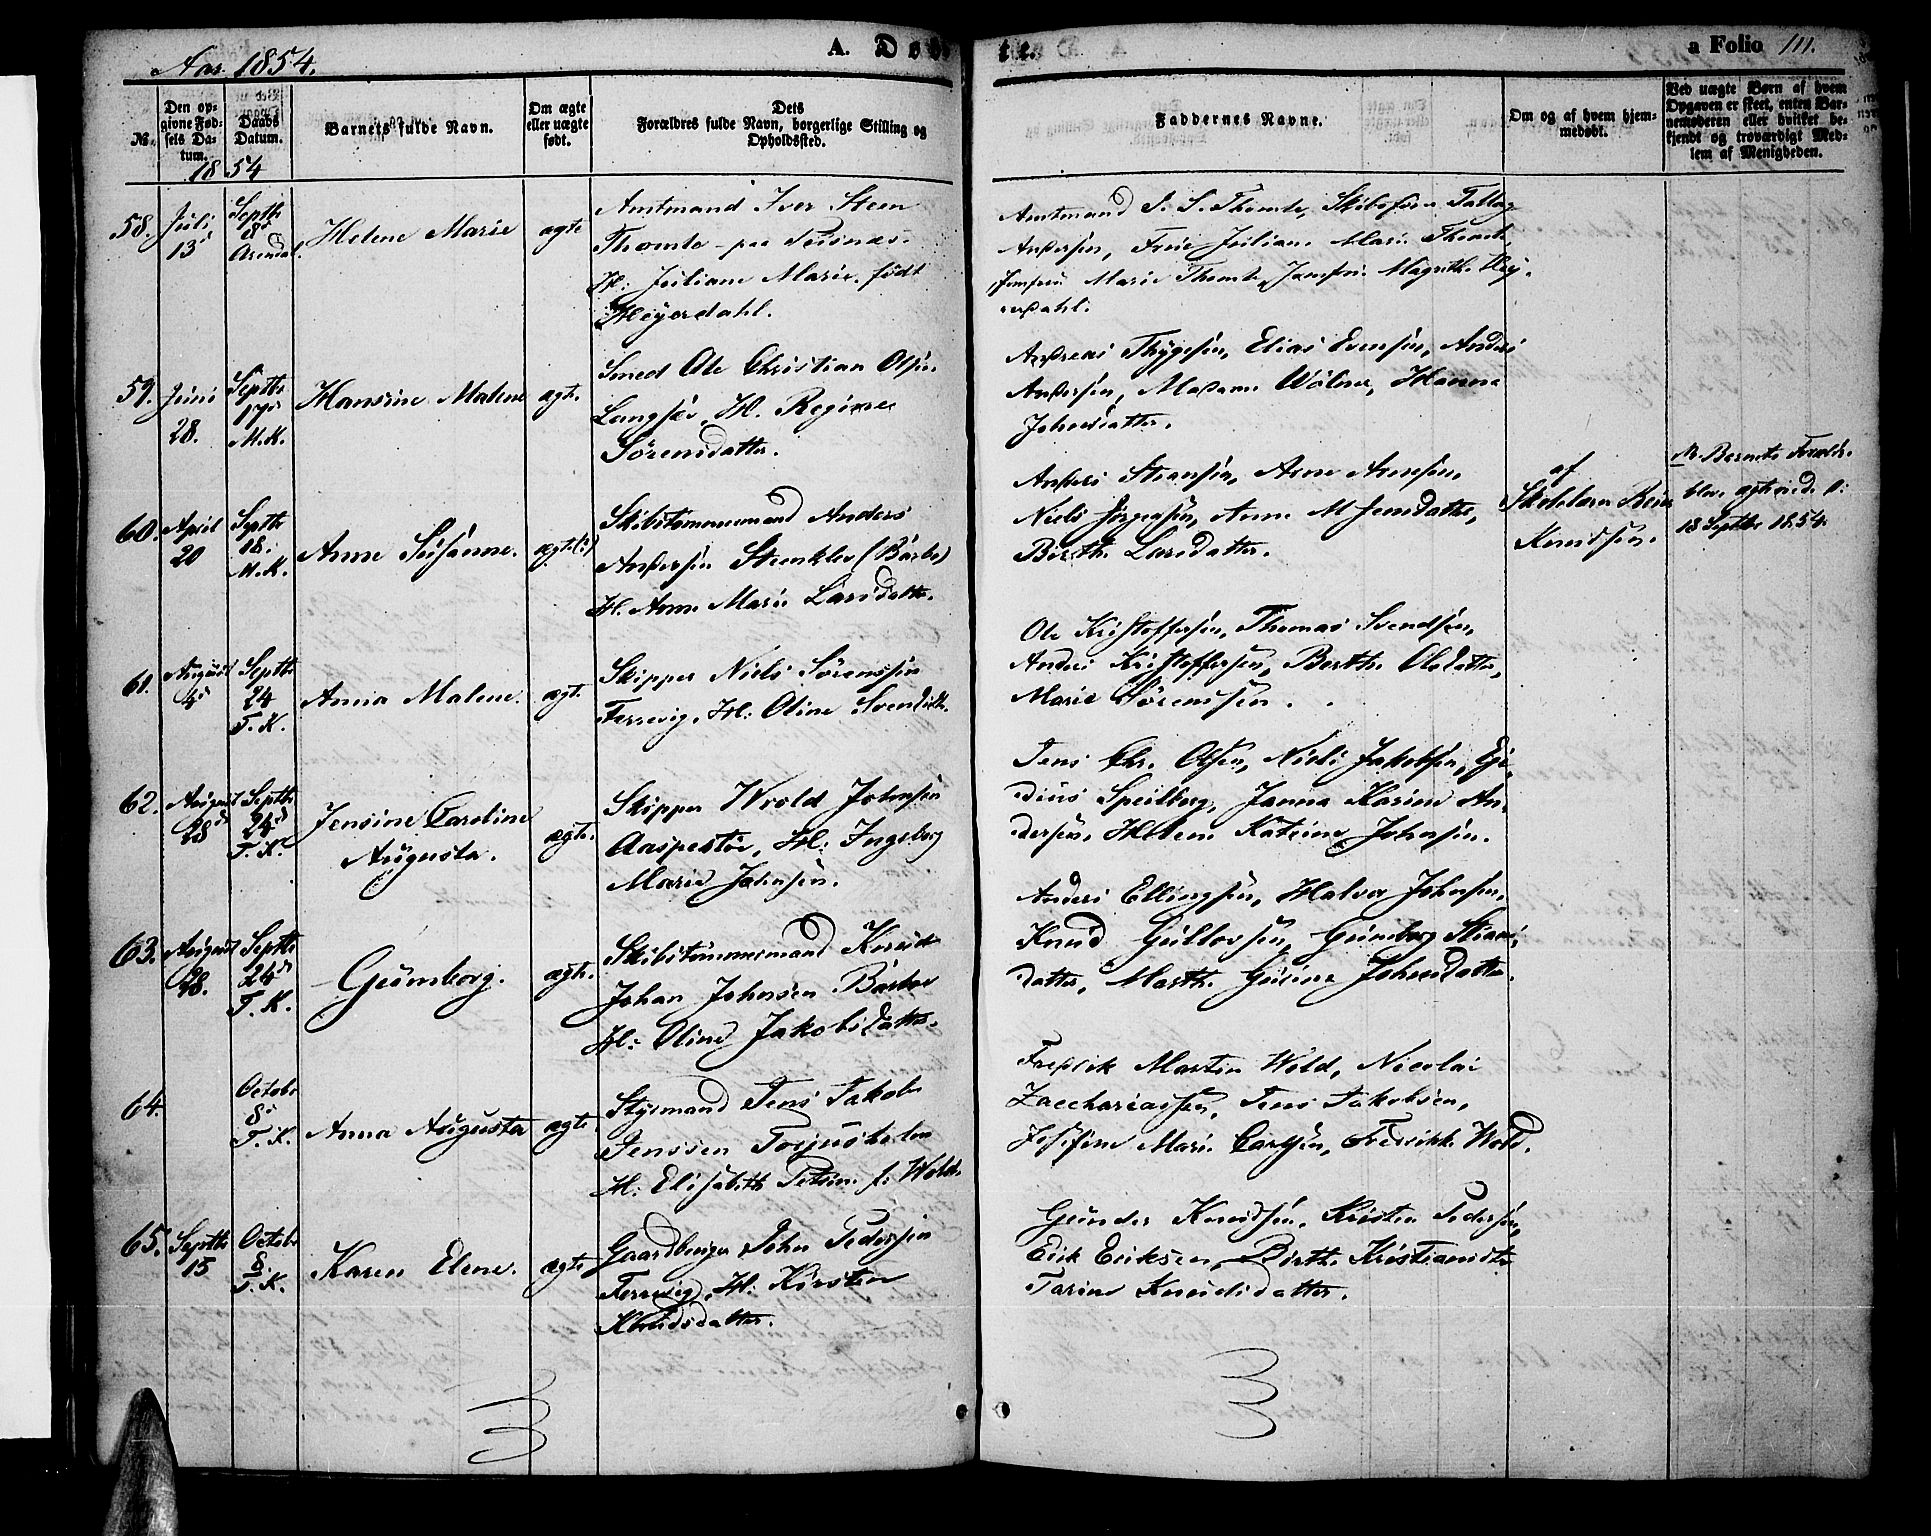 Aar 1854.
A. Døb
te.
a Folio 111.
№.
Den op-
givne Fød-
sels Da-
tum.
Daabs
Datum.
Barnets fulde Navn.
Om ægte
eller uægte
født.
Dets
Forældres fulde Navn, borgerlige Stilling og
Opholdssted.
Faddernes Navne.
Om og af hvem hjem-
medøbt.
Ved uægte Børn af hvem
Opgaven er skeet, enten Bar-
nemoderen eller hvilket be-
kjendt og troværdigt Med-
lem af Menigheden.
1854
58.
Juli
13
Septbr
8
Arendal.
Helene Marie
ægte
Amtmand Iver Steen
Thomle paa
H: Juliane Marie født
Heyerdahl.
Amtmand I. S. Thomle, Skibsfører
Andersen, Frue Juliane Marie Thomle,
Jomfru Marie Thomle, Jomfru Magrethe Hey-
erdahl.
59.
Juni
28.
Septbr
17
M.K.
Hansine Malene
ægte.
Smed Ole Christian Olsen
Langsæv, H. Regine
Sørensdatter.
Andreas Thygesen, Elias Evensen, Anders
Andersen, Madame Wølner, Hanna
Johnsdatter.
60.
April
20
Septbr
18.
M.K.
Anne Susanne.
ægte(?)
Skibstømmermand Anders
Andersen Steenklev (Barbo)
H. Anne Marie Larsdatter.
Anders Steensen, Arne Arnesen,
Niels Jørgensen, Anne M Jensdatter,
Berthe Larsdatter.
af
Skolelærer
Knudsen.
NB. Barnets Forældre
blev ægteviede d:
18 Septbr 1854.
61.
August
4
Septbr
24
T.K.
Anna Malene.
ægte.
Skipper Niels Sørenssen
Terrevig, H: Oline Svendsdtr.
Ole Kristoffersen, Thomas Svendsen,
Anders Kristoffersen, Berthe Olsdatter,
Marie Sørenssen.
62.
August
28
Septbr
24
T.K.
Jensine Caroline
Augusta.
ægte.
Skipper Wrold Johnsen
Aaspestøe, H: Ingeborg
Marie Johnsen.
Jens Chr. Olsen, Niels Jakobsen, Egi-
dius Speilberg, Janna Karine An-
dersen, Helene Katrine Johnsen.
63.
August
28.
Septbr
24
T.K.
Gunborg.
ægte.
Skibstømmermand Knud
Johan Johnsen Barbo
H: Oline Jakobsdatter.
Anders Ellingsen, Halvor Johnsen,
Knud Gullovsen, Gunborg Stians-
datter, Marthe Gurine Johnsdatter.
64.
Octobr
8
T.K.
Anna Augusta
ægte.
Styrmand Jens Jakob
Jenssen Torjusholm
H: Elisabeth Petrine f: Wold.
Fredrik Martin Wold, Nicolai
Zacchariassen, Jens Jakobsen,
Josefine Marie Carlsen, Fredrikke Wold.
65.
Septbr
15
Octobr
8.
T.K.
Karen Elene.
ægte
Gaardbruger John Pedersen
Terrevig, H: Kirsten
Knudsdatter.
Gunder Knudsen, Kristen Pedersen,
Erik Eriksen, Birthe Kristiansdtr
Tarine Knudsdatter.